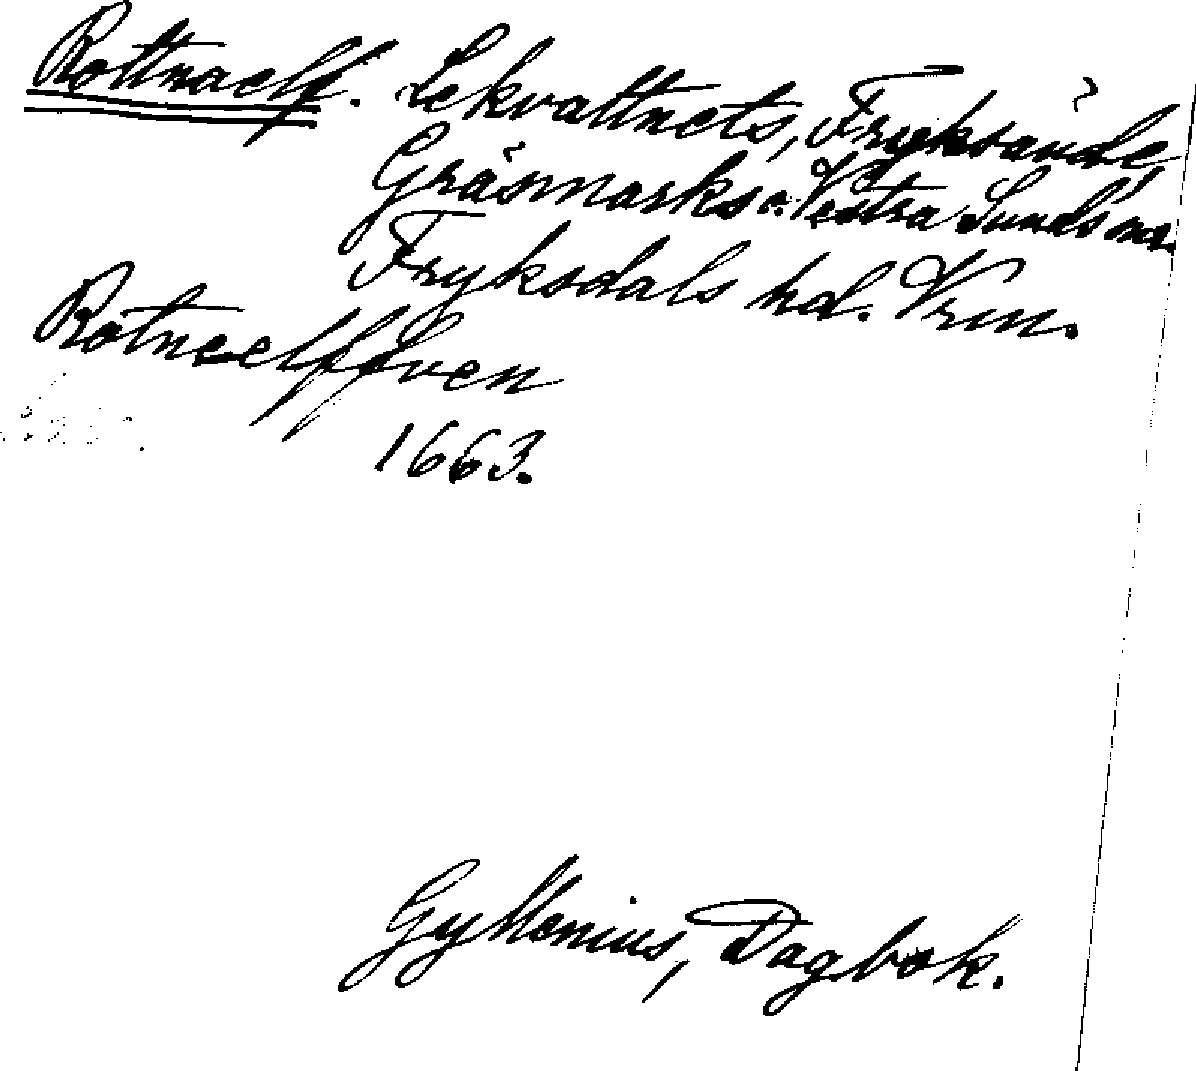 Rottnaelf. Lekvattnets, Fryksände,
Gräsmarks o. Vestra Sunds snr.
Fryksdals hd. Vrm.
Rotneelffven
1663.
Gyllenius, Dagbok.